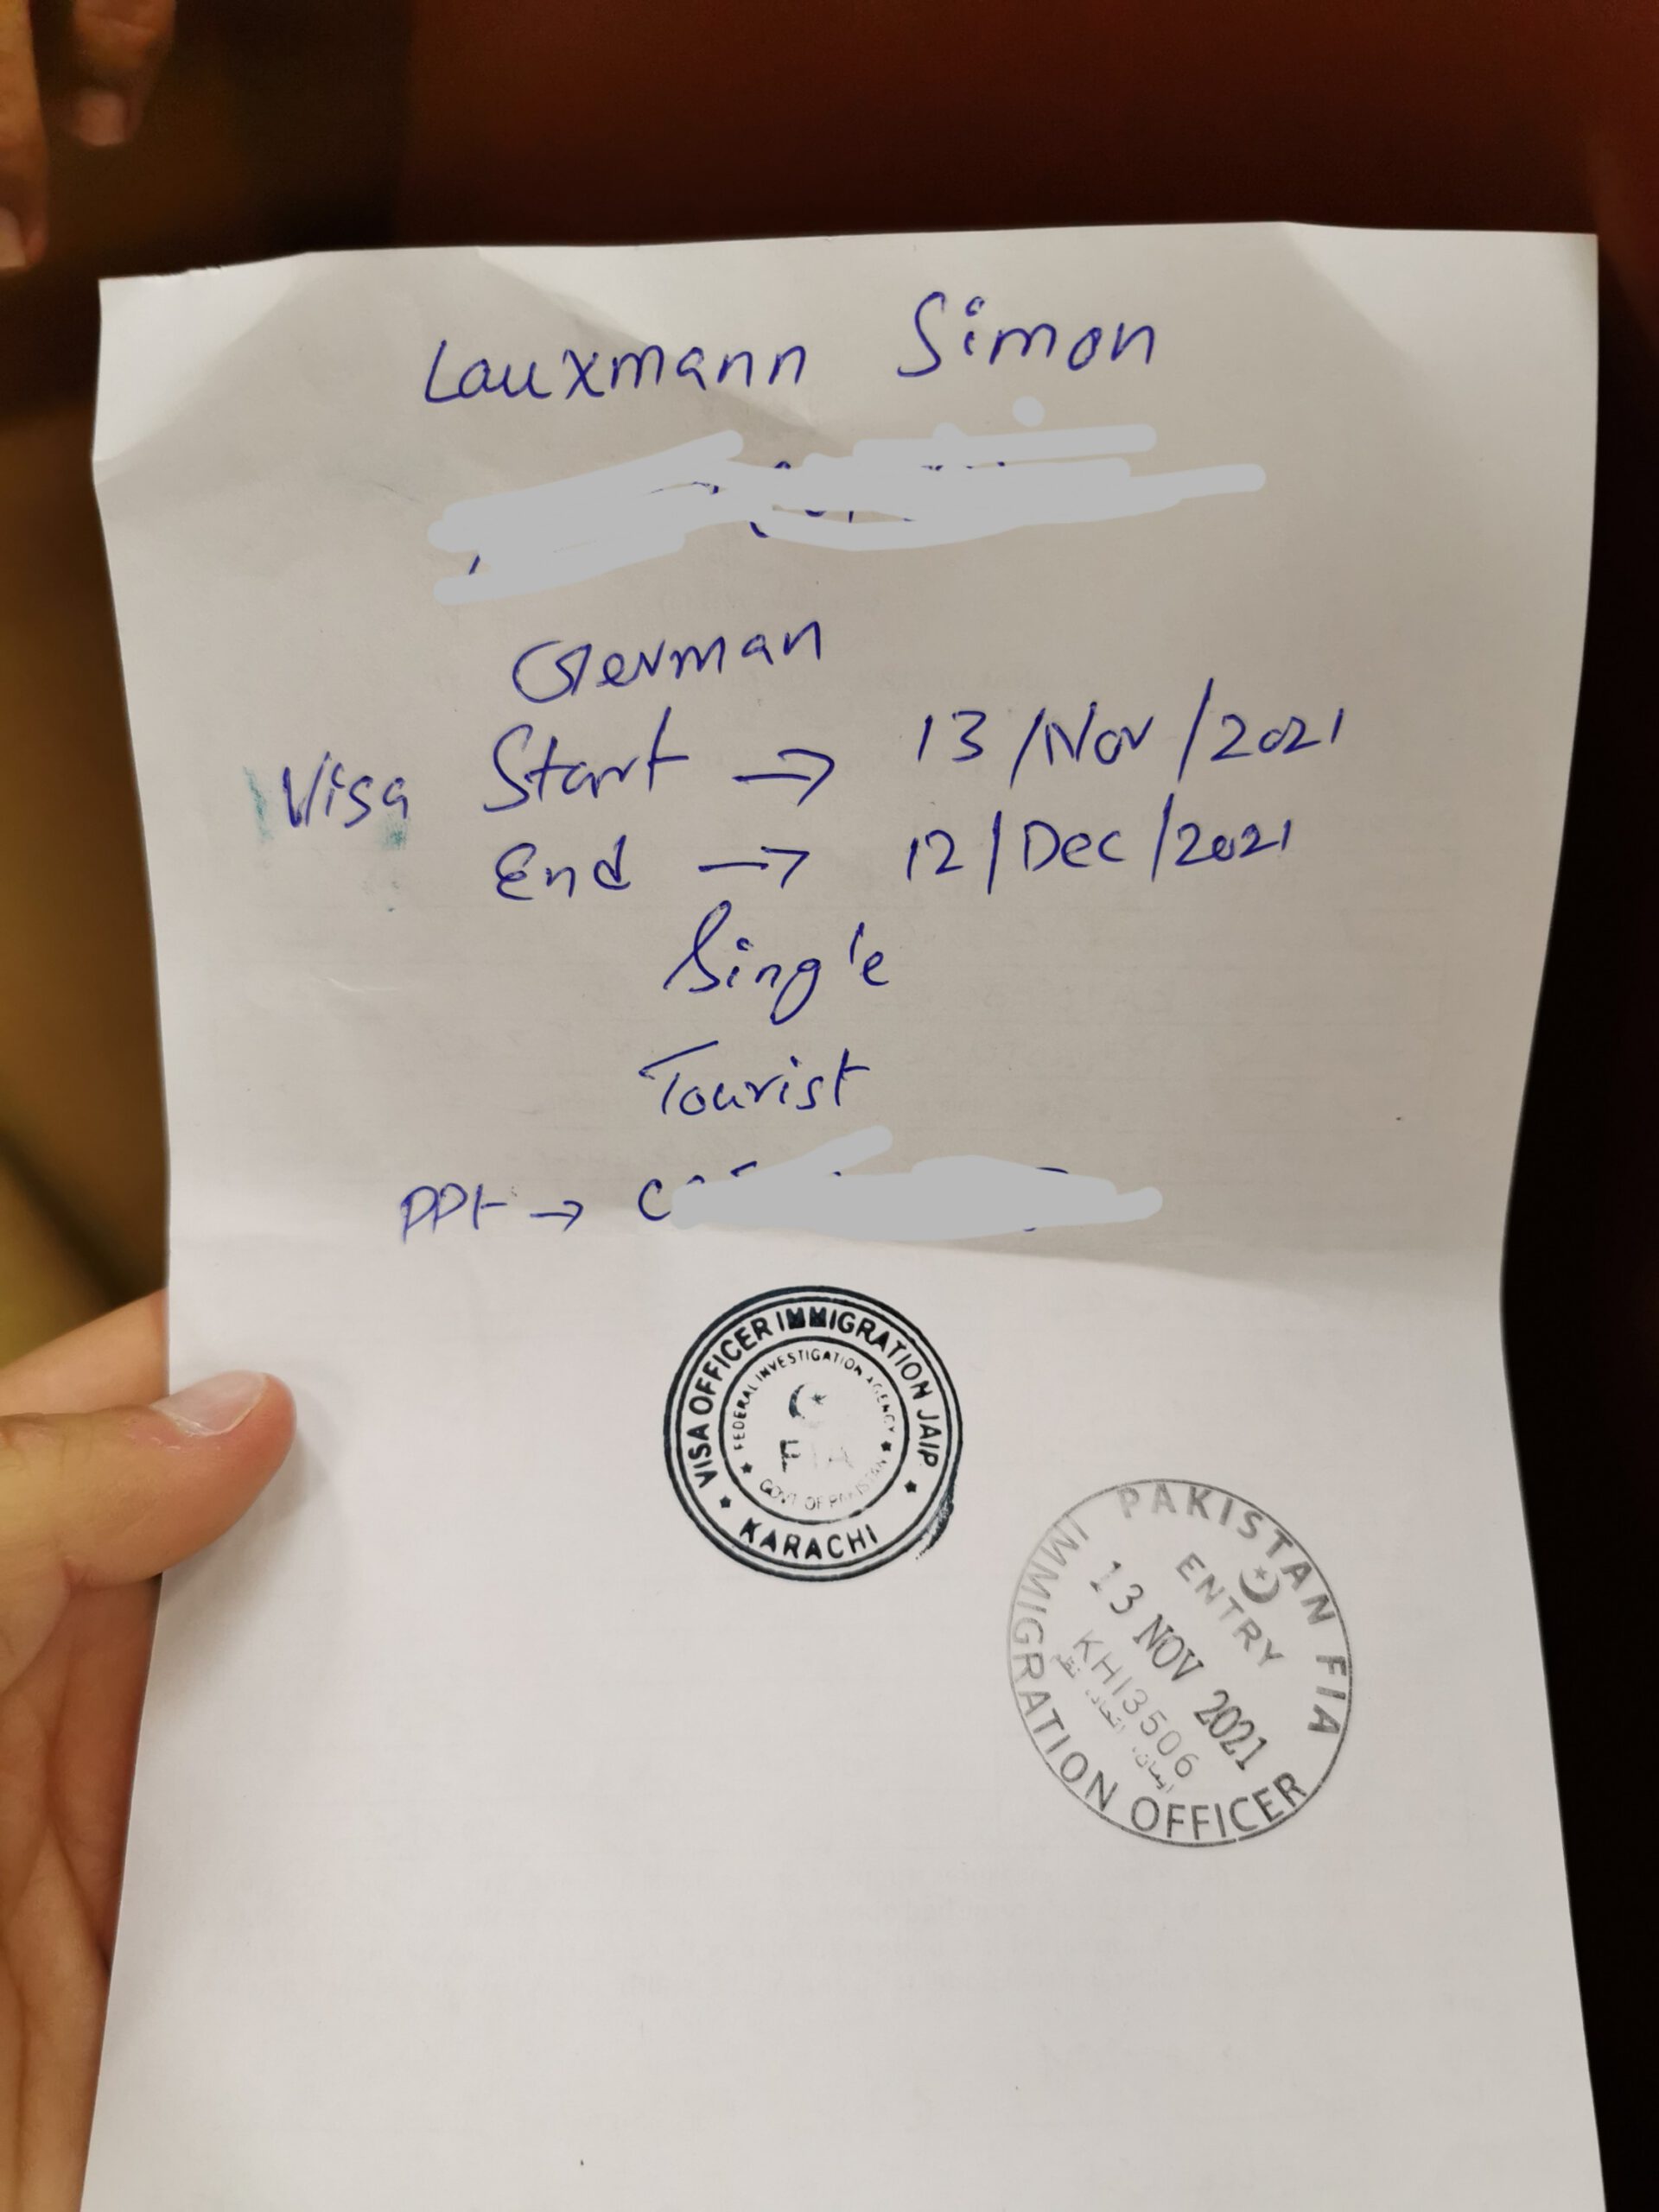 Lauxmann Simon
German
Visa Start → 13/Nov/2021
End → 12/Dec/2021
Single
Tourist
PPt → C
VISA OFFICER IMMIGRATION JAIP
★ KARACHI ★
FEDERAL INVESTIGATION AGENCY
FIA
★ GOVT OF PAKISTAN ★
PAKISTAN FIA
ENTRY
13 NOV 2021
KHI3506
IMMIGRATION OFFICER